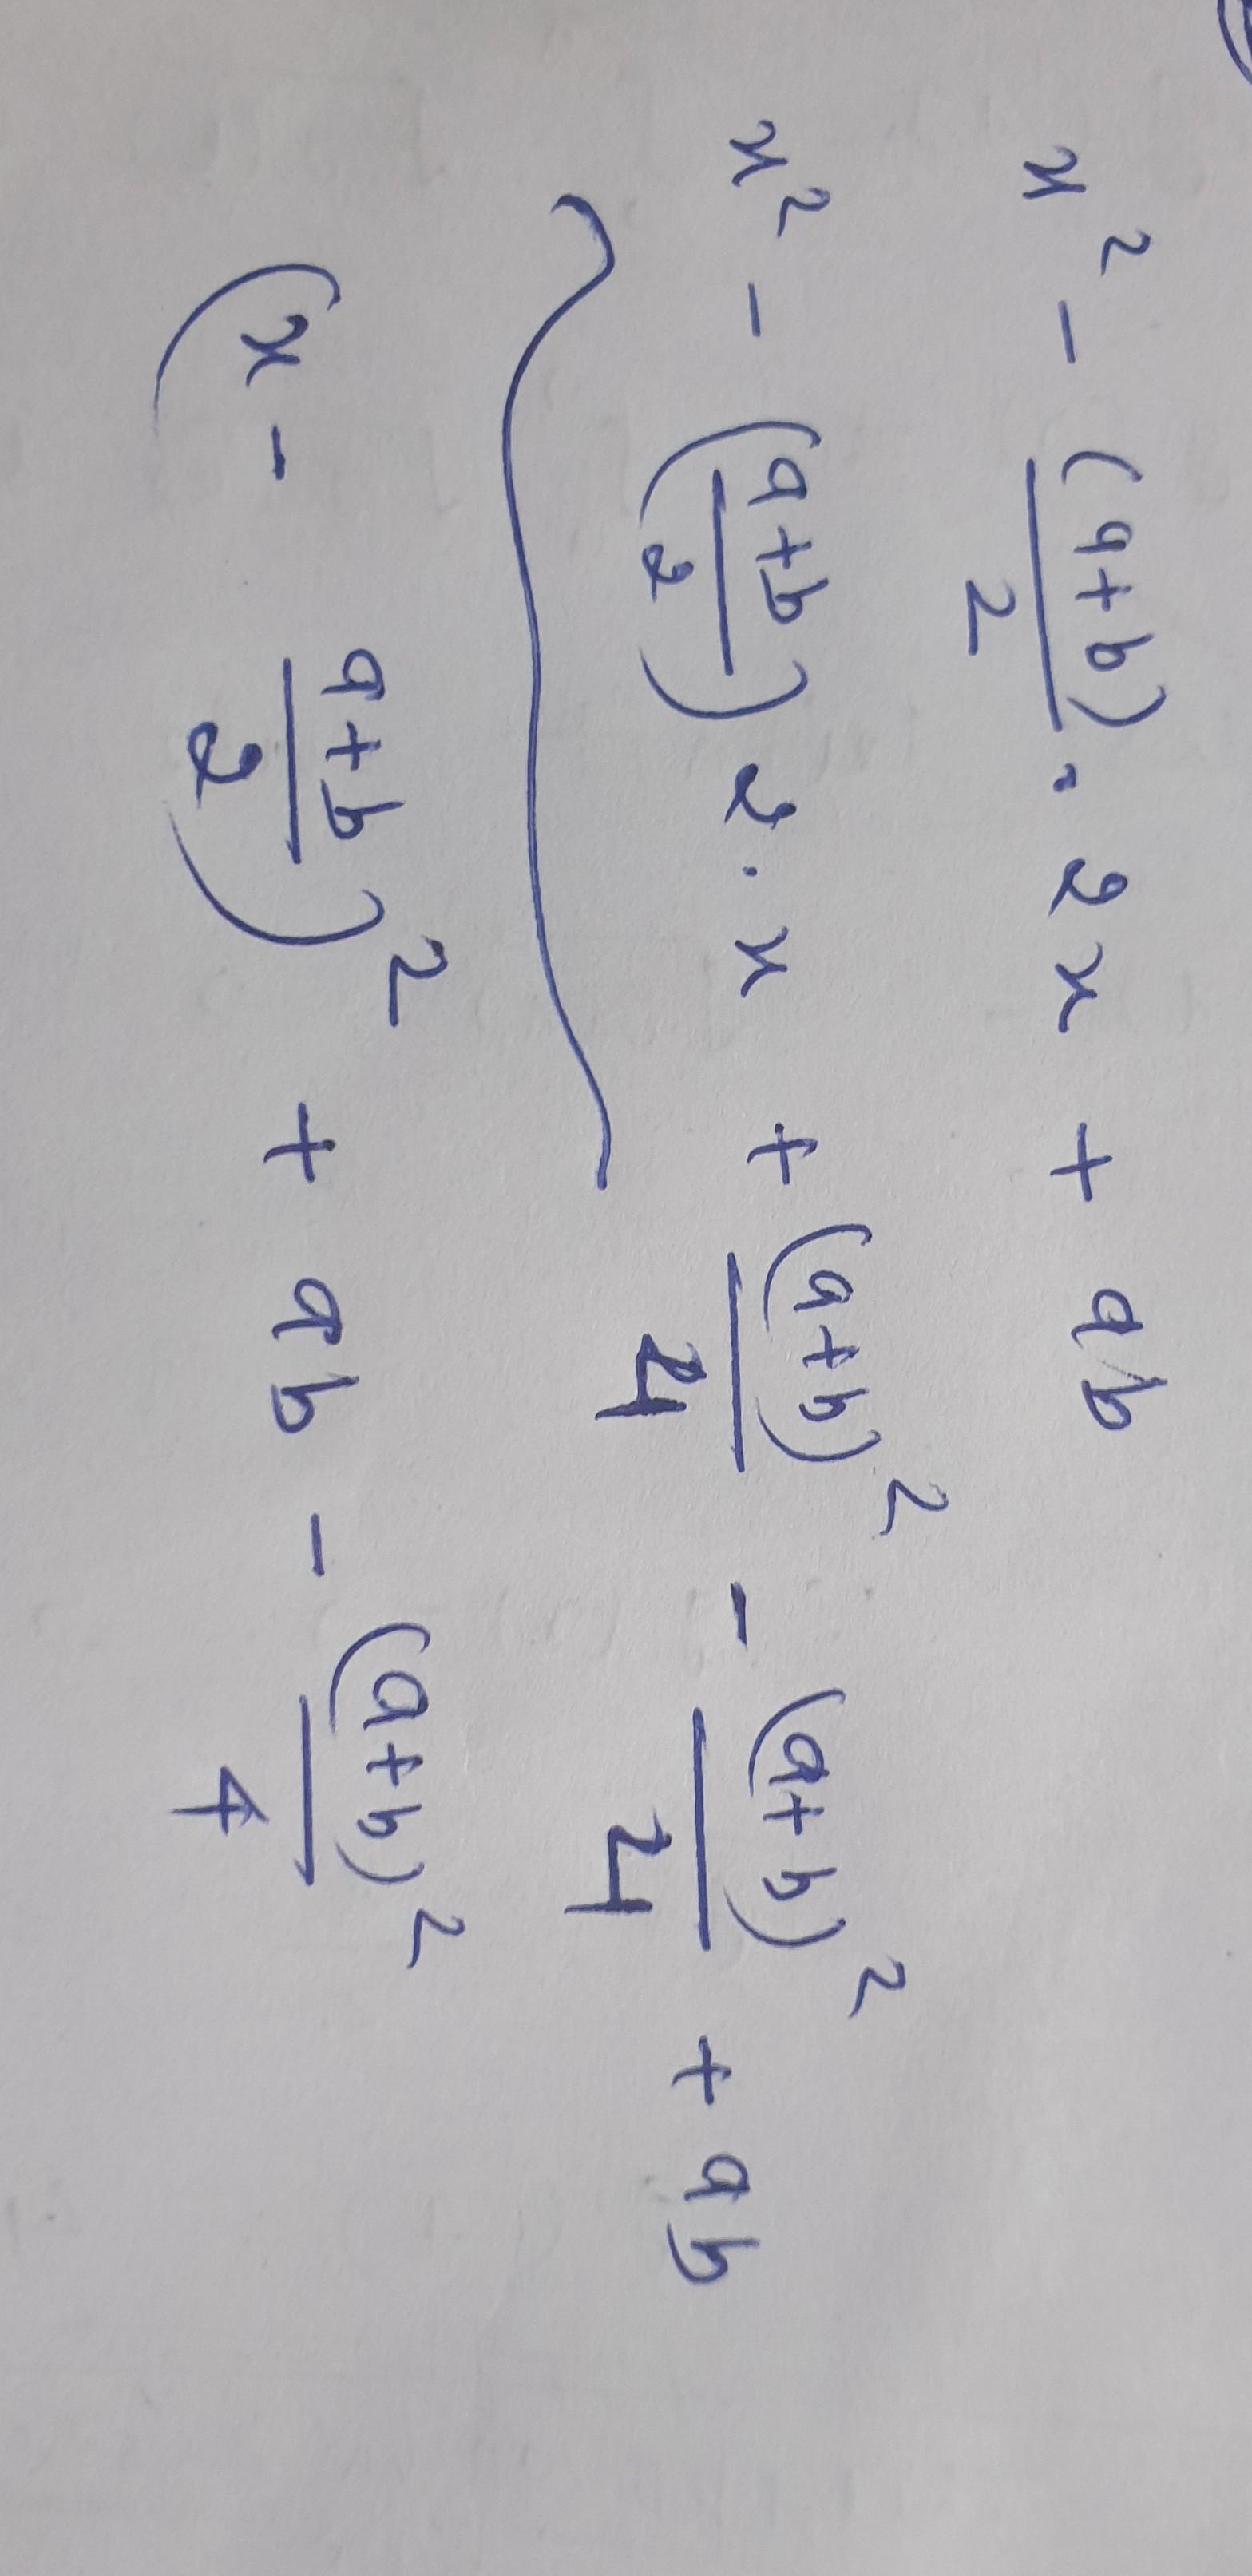 x² - (a+b)/2 · 2x + ab
x² - ((a+b)/2) 2·x + (a+b)²/4 - (a+b)²/4 + ab
(x - (a+b)/2)² + ab - (a+b)²/4